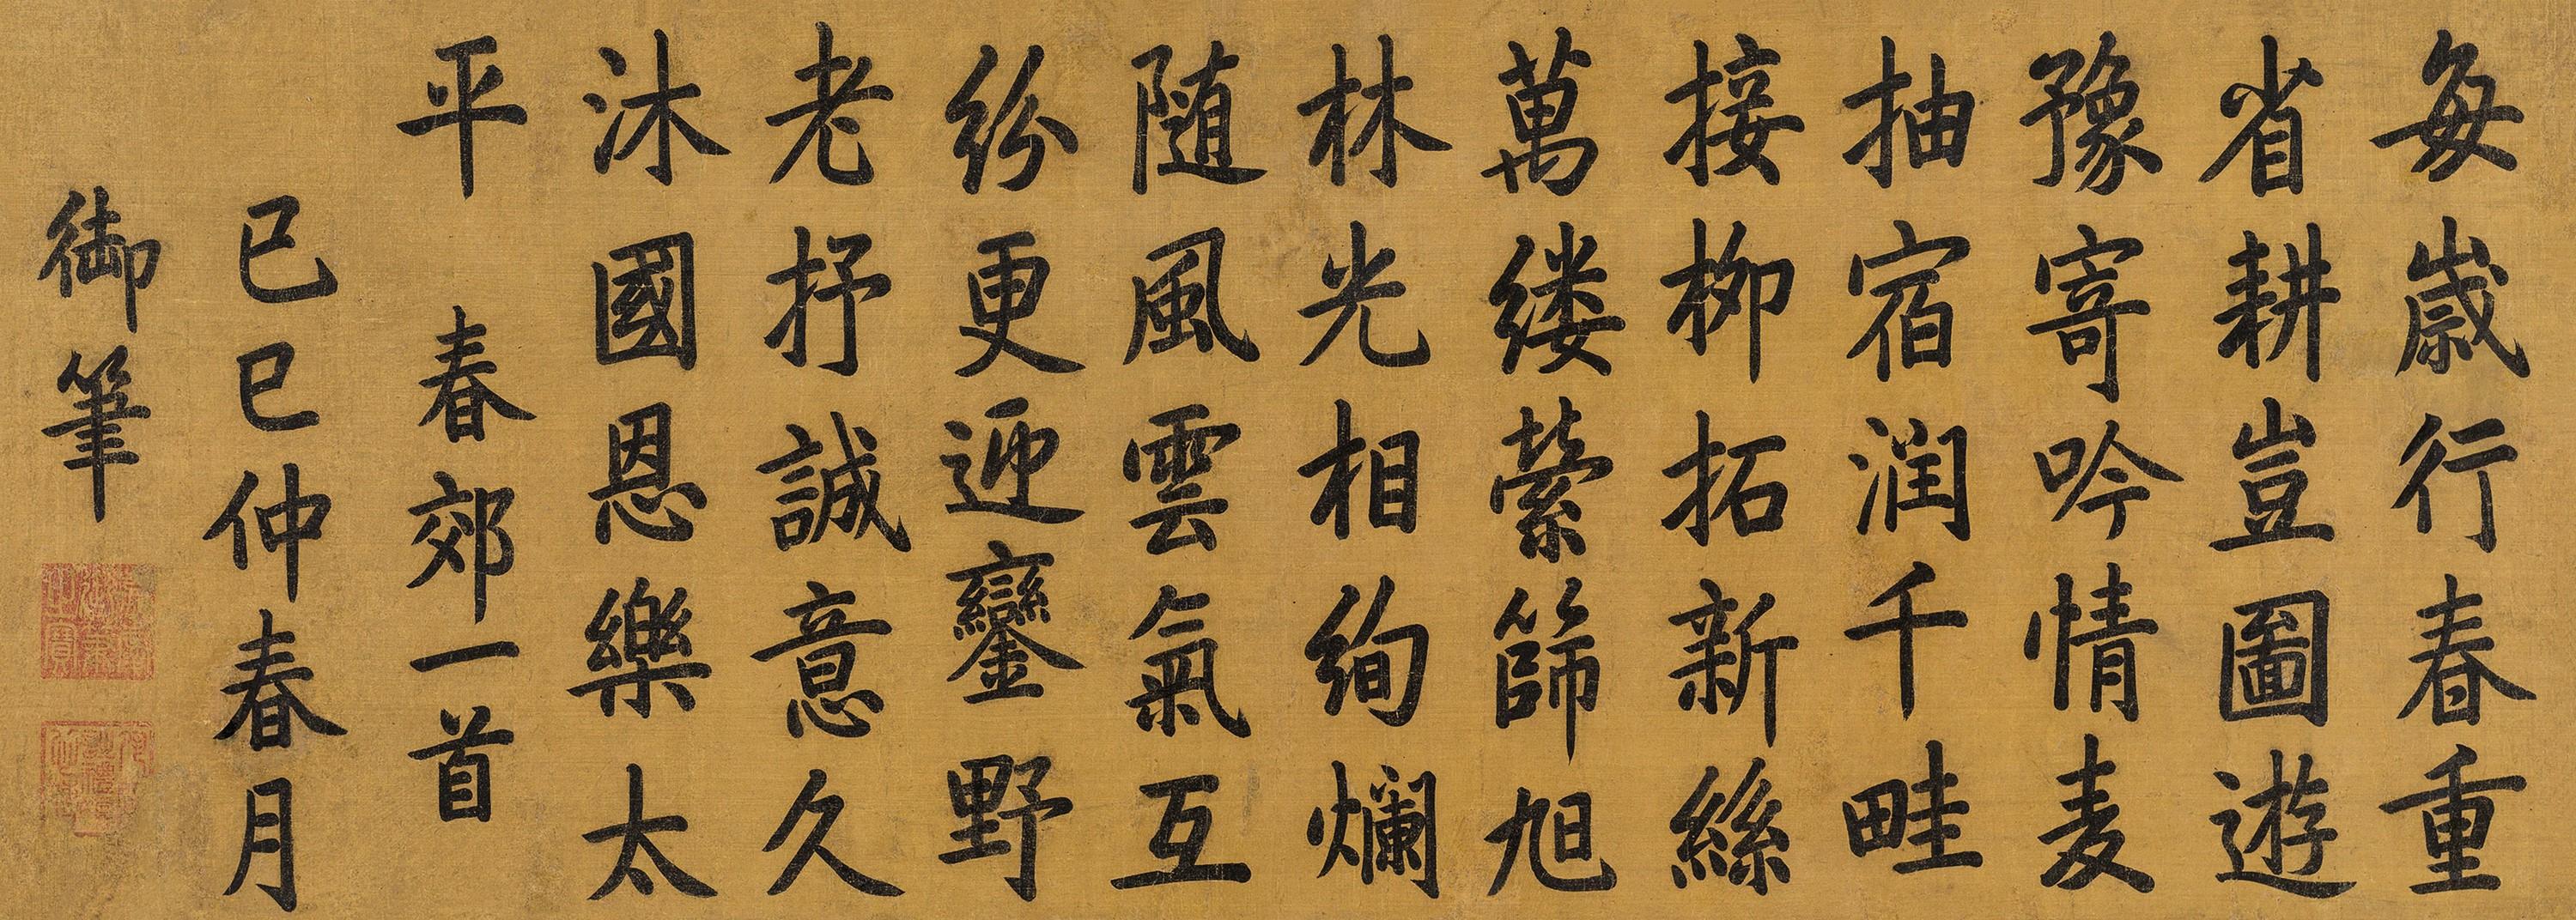 每歲行春重
省耕豈圖遊
豫寄吟情麦
抽宿润千畦
接栁拓新絲
萬缕縈篩旭
林光相絢爛
随風雲氣互
紛更迎鑾野
老抒誠意久
沐國恩樂太
平 春郊一首
己巳仲春月
御筆